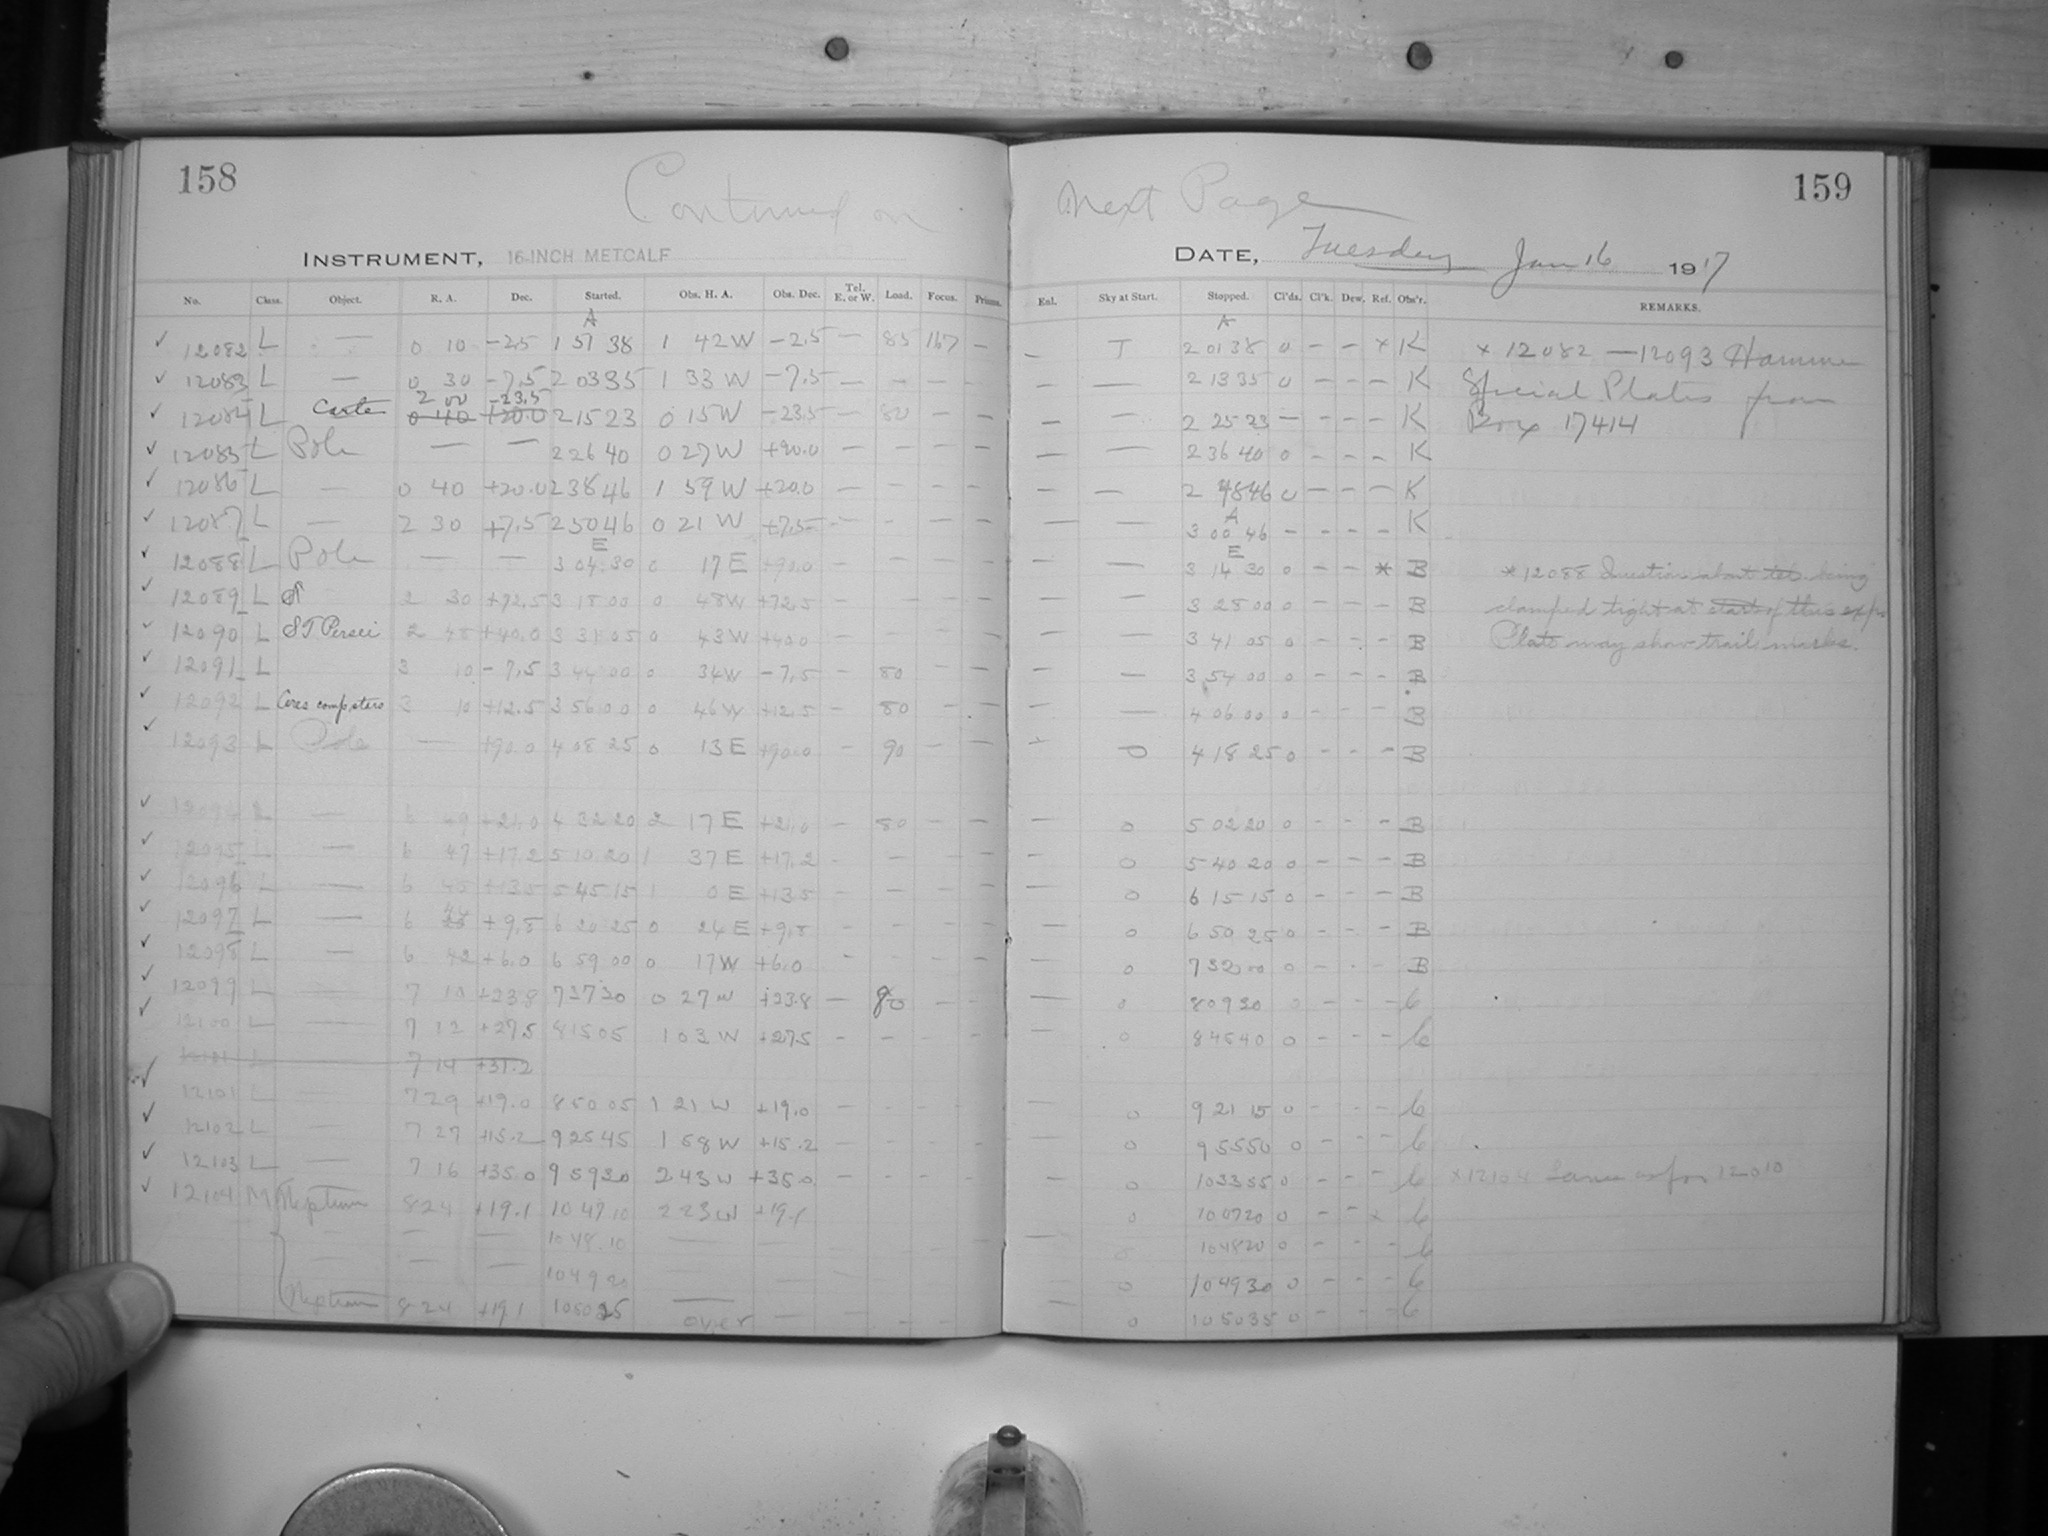 158
Continued on
next Page
159
INSTRUMENT, 16-INCH METCALF
DATE, Tuesday Jan 16 1917
No. Class. Object. R. A. Dec. Started. Obs. H. A. Obs. Dec. Tel. E. or W. Load. Focus. Prisms. Exl. Sky at Start. Stopped. Cl'ds. Cl'k. Dew. Ref. Obs'r. REMARKS.
A A
✓ 12082 L — 0 10 -2.5 1 57 38 1 42 W -2.5 — 85 167 — — T 2 01 38 0 — — × K × 12082 — 12093 Hammer
✓ 12083 L — 0 30 -7.5 2 03 35 1 33 W -7.5 — — — — — 2 13 35 0 — — — K Special Plates from
2 00 -23.5
✓ 12084 L 0 40 +20.0 2 15 23 0 15 W -23.5 — 80 — — — — 2 25 23 — — — — K Box 17414
✓ 12085 L Pole — — 2 26 40 0 27 W +90.0 — — — — — — 2 36 40 0 — — — K
✓ 12086 L — 0 40 +20.0 2 38 46 1 59 W +20.0 — — — — — — 2 48 46 0 — — — K
A
✓ 12087 L — 2 30 +7.5 2 50 46 0 21 W +7.5 — — — — — — 3 00 46 — — — — K
E E
✓ 12088 L Pole — — 3 04 30 0 17 E +90.0 — — — — 3 14 30 0 — — * B * 12088 Question about tel. being
✓ 12089 L 2 30 +72.5 3 18 00 0 48 W +72.5 — — — — — — 3 28 00 0 — — — B clamped tight at start of this exp.
✓ 12090 L ST Persei 2 48 +40.0 3 31 05 0 43 W +40.0 — — — — — — 3 41 05 0 — — — B Plate may show trail marks.
✓ 12091 L 3 10 -7.5 3 44 00 0 34 W -7.5 — 80 — — — — 3 54 00 0 — — — B
✓ 12092 L Ceres comp. stars 3 10 +12.5 3 56 00 0 46 W +12.5 — 80 — — — — 4 06 00 0 — — — B
✓ 12093 L Pole — +90.0 4 08 25 0 13 E +90.0 — 90 — — — 4 18 25 0 — — — B
✓ 12094 L — 6 49 +21.0 4 32 20 2 17 E +21.0 — 80 — — — 0 5 02 20 0 — — — B
✓ 12095 L — 6 47 +17.2 5 10 20 1 37 E +17.2 — — — — — 0 5 40 20 0 — — — B
✓ 12096 L — 6 45 +13.5 5 45 15 1 0 E +13.5 — — — — — 0 6 15 15 0 — — — B
✓ 12097 L — 6 +9.8 6 20 25 0 24 E +9.8 — — — — — 0 6 50 25 0 — — — B
✓ 12098 L — 6 42 +6.0 6 59 00 0 17 W +6.0 — — — — 0 7 32 00 0 — — — B
✓ 12099 L — 7 10 +23.8 7 37 30 0 27 W +23.8 — 80 — — — 0 8 09 30 0 — — — C
✓ 12100 L — 7 12 +27.5 8 15 05 1 03 W +27.5 — — — — — 0 8 45 40 0 — — — C
12101 L 7 14 +31.2
✓ 12101 L — 7 29 +19.0 8 50 05 1 21 W +19.0 — — — — 0 9 21 15 0 — — — C
✓ 12102 L — 7 27 +15.2 9 25 45 1 58 W +15.2 — — — — — 0 9 55 50 0 — — — C
✓ 12103 L — 7 16 +35.0 9 59 30 2 43 W +35.0 — — — — — 0 10 33 55 0 — — — C × 12104 Same as for 12010
✓ 12104 M Neptune 8 24 +19.1 10 47 10 2 23 W +19.1 0 10 47 20 0 — — × C
— — — 10 48 10 — — 10 48 20 0 — — — C
— — — 10 49 20 — — 0 10 49 30 0 — — — C
Neptune 8 24 +19.1 10 50 25 — — — 0 10 50 35 0 — — — C
over